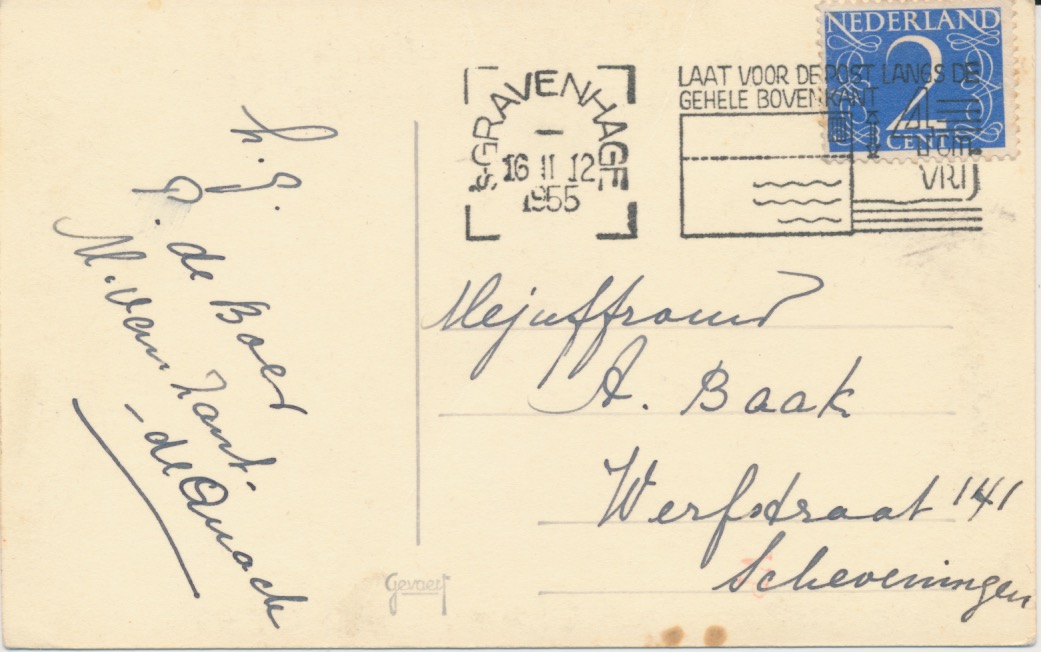 NEDERLAND
2
CENT
'S-GRAVENHAGE
16 II 12
1955
LAAT VOOR DE POST LANGS DE
GEHELE BOVENKANT
4 cm.
VRIJ
h. g.
P. de Boer
M. van Zant-
-de Quack
Mejuffrouw
A. Baak
Werfstraat 141
Scheveningen
Gevaert